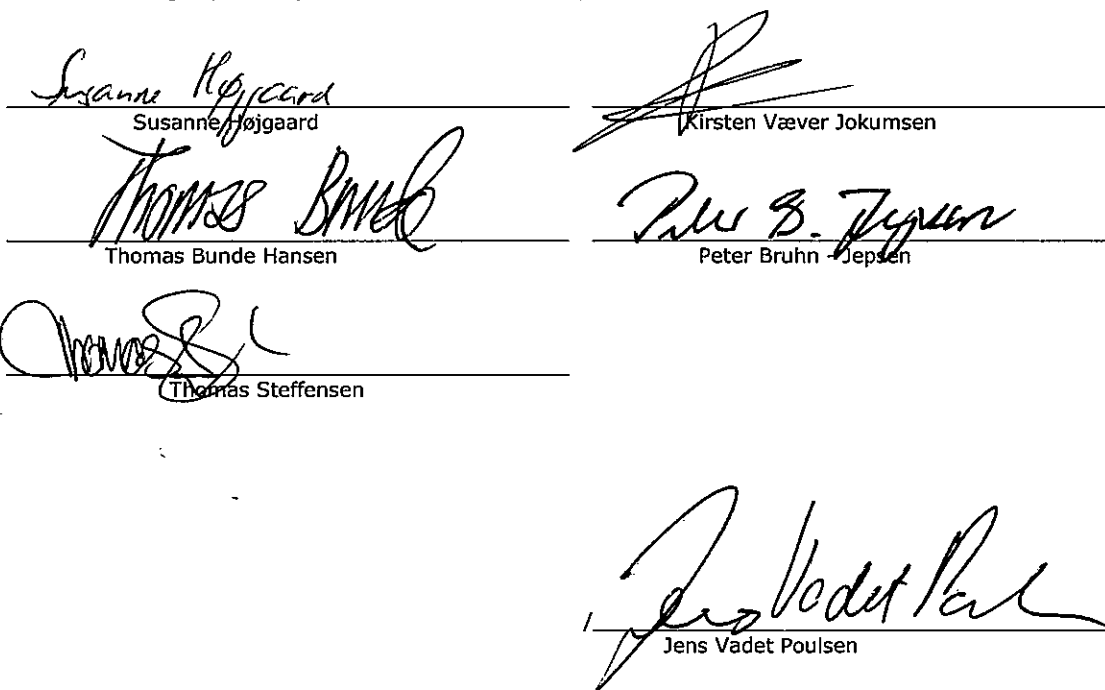 Susanne Højgaard
Susanne Højgaard
Kirsten Væver Jokumsen
Thomas Bunde
Thomas Bunde Hansen
Peter B. Jepsen
Peter Bruhn - Jepsen
Thomas
Thomas Steffensen
Jens Vadet Poulsen